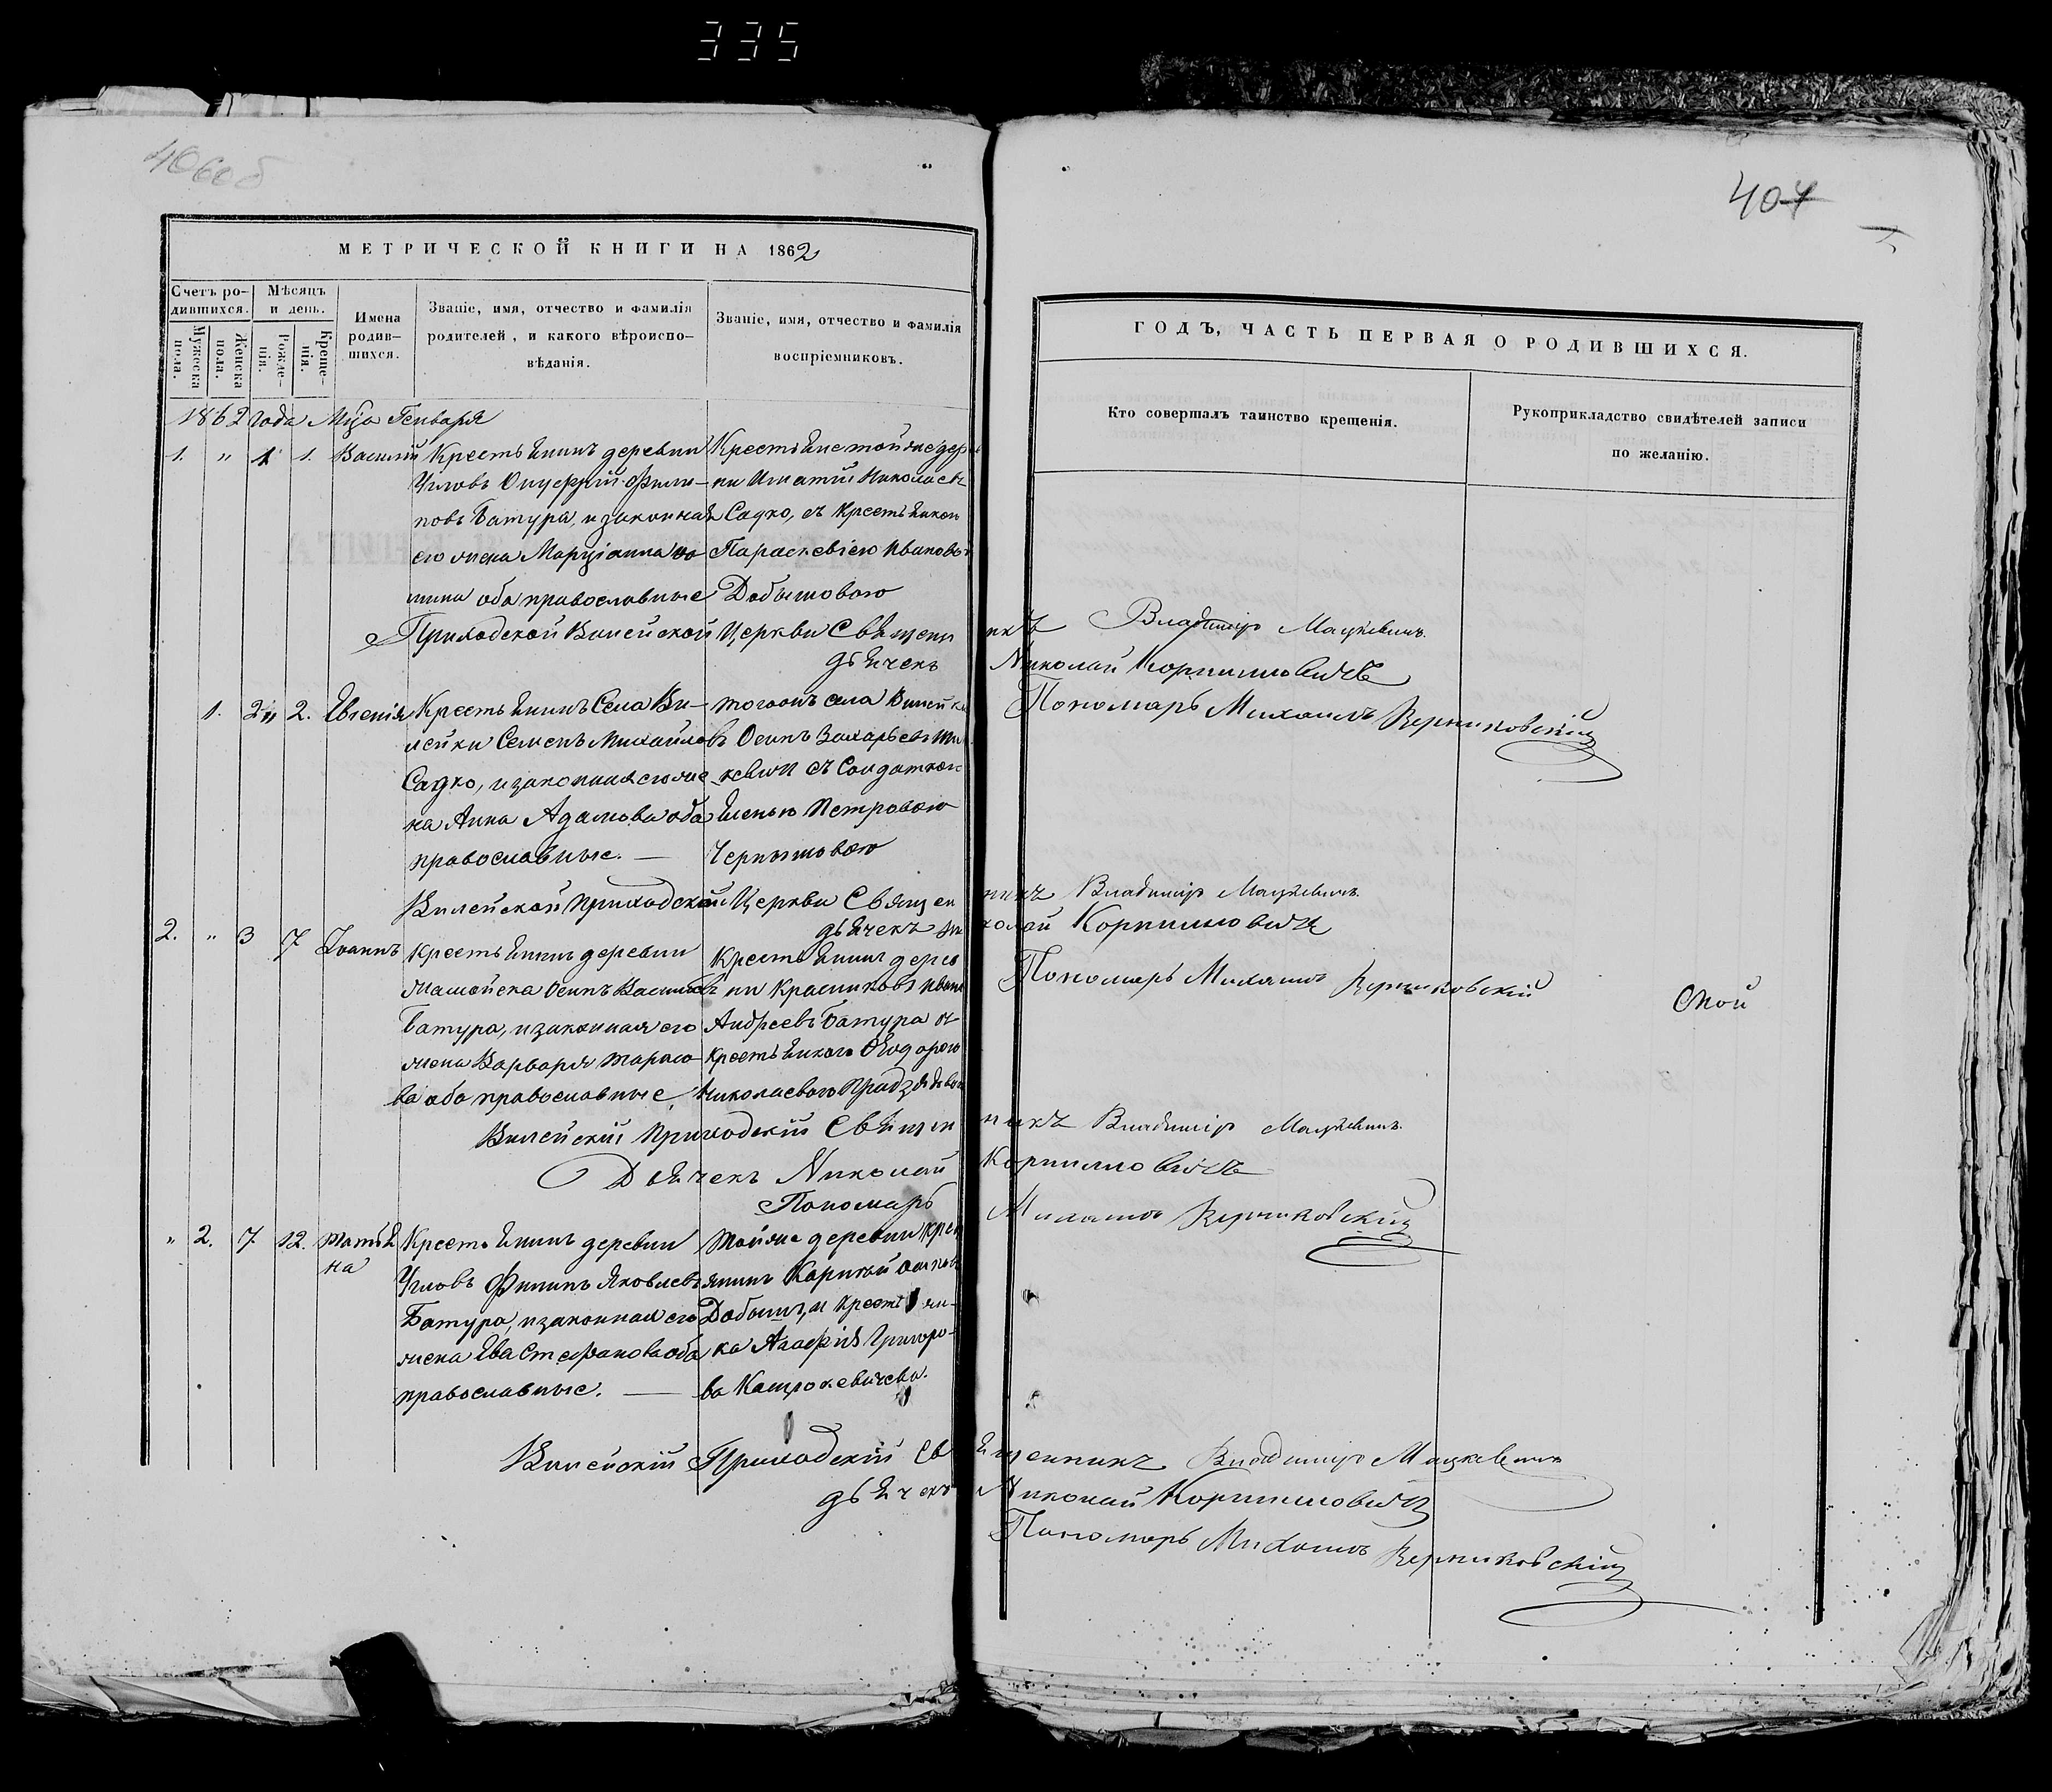 335
406об
407
МЕТРИЧЕСКОЙ КНИГИ НА 1862
Счетъ ро-
дившихся.
Мужеска
пола.
Женска
пола.
Мѣсяцъ
и день.
Рожде-
нія.
Креще-
нія.
Имена
родив-
шихся.
Званіе, имя, отчество и фамилія
родителей, и какого вѣроиспо-
вѣданія.
Званіе, имя, отчество и фамилія
воспріемниковъ.
ГОДЪ, ЧАСТЬ ПЕРВАЯ О РОДИВШИХСЯ.
Кто совершалъ таинство крещенія.
Рукоприкладство свидѣтелей записи
по желанію.
1862 года Мца Генваря
1. " 1 1. Василій
Крестьянинъ деревни
Угловъ Онуфрій Фили-
повъ Батура, и законная
его жена
оба православные
Крестьяне тойже дерев
ни Игнатій Николаев
Садко, съ крестьянкою
Параскевіею Иванов
Добышовою
Приходской Вилейской Церкви Священникъ Владиміръ Мацкевичъ.
дьячекъ Николай Корниловичъ
Пономарь Михаилъ Верниковскій
1. 2 2. Евгенія
Крестьянинъ Села Ви-
лейки Семенъ Михайловъ
Садко, и законная его же-
на Анна Адамова оба
православные. —
тогожъ села Вилейки
Осипъ Захарьевъ
съ Солдаткою
Еленою Петровою
Чернышовою
Вилейской приходской Церкви Священникъ Владиміръ Мацкевичъ.
дьячекъ Николай Корниловичъ
Пономарь Михаилъ Верниковскій
2. " 3 7 Іоаннъ
Крестьянинъ деревни
Осипъ Васильевъ
Батура, и законная его
жена Варвара Тарасо-
ва оба православные
Крестьянинъ дерев
ни Красниковъ Иванъ
Андреевъ Батура и
крестьянкою Ѳеодорою
Николаевою
Вилейскій приходскій Священникъ Владиміръ Мацкевичъ.
Дьячекъ Николай Корниловичъ
Пономарь Михаилъ Верниковскій
" 2. 7. 12. Татья
на
Крестьянинъ деревни
Угловъ Филипъ Яковлевъ
Батура, и законная его
жена Ева Стефанова оба
православные. —
Тойже деревни крест
янинъ Карпъ
Добышъ, и крестьян-
ка Агафія Григоро-
ва
Вилейскій Приходскій Священникъ Владиміръ Мацкевичъ
дьячекъ Николай Корниловичъ
Пономарь Михаилъ Верниковскій